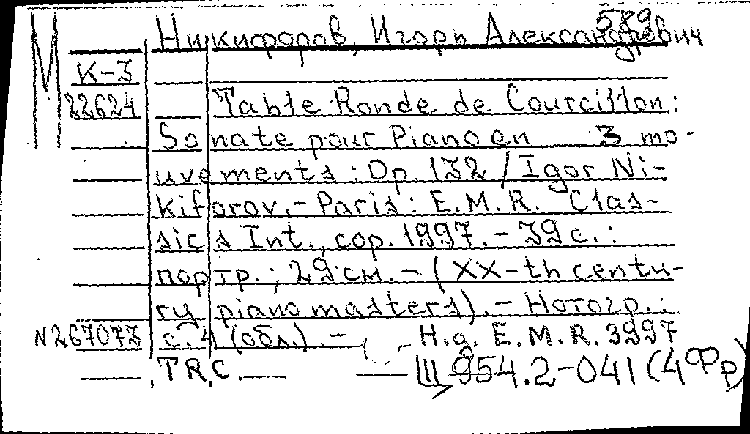 М
589
Никифоров, Игорь Александрович
К-3
22624 Table Ronde de Courcillon:
Sonate pour Piano en 3 mo-
uvements: Op. 132 / Igor Ni-
kiforov. - Paris: E.M.R. Clas-
sics Int., cop. 1997. - 39 с.:
портр.; 29 см. - (XX-th centu-
ry piano masters). - Нотогр.:
N267073 с. 4 (обл.) - Н.д. E.M.R. 3997
TRC. Ш 954.2-041(4Фр)